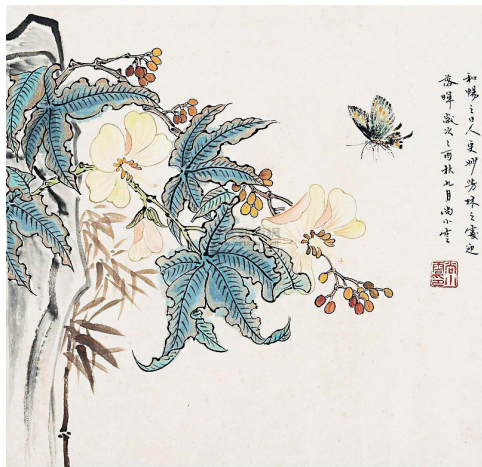 和暢之日人更妙芳林之處迎
落暉歲次乙酉秋九月尚小雲